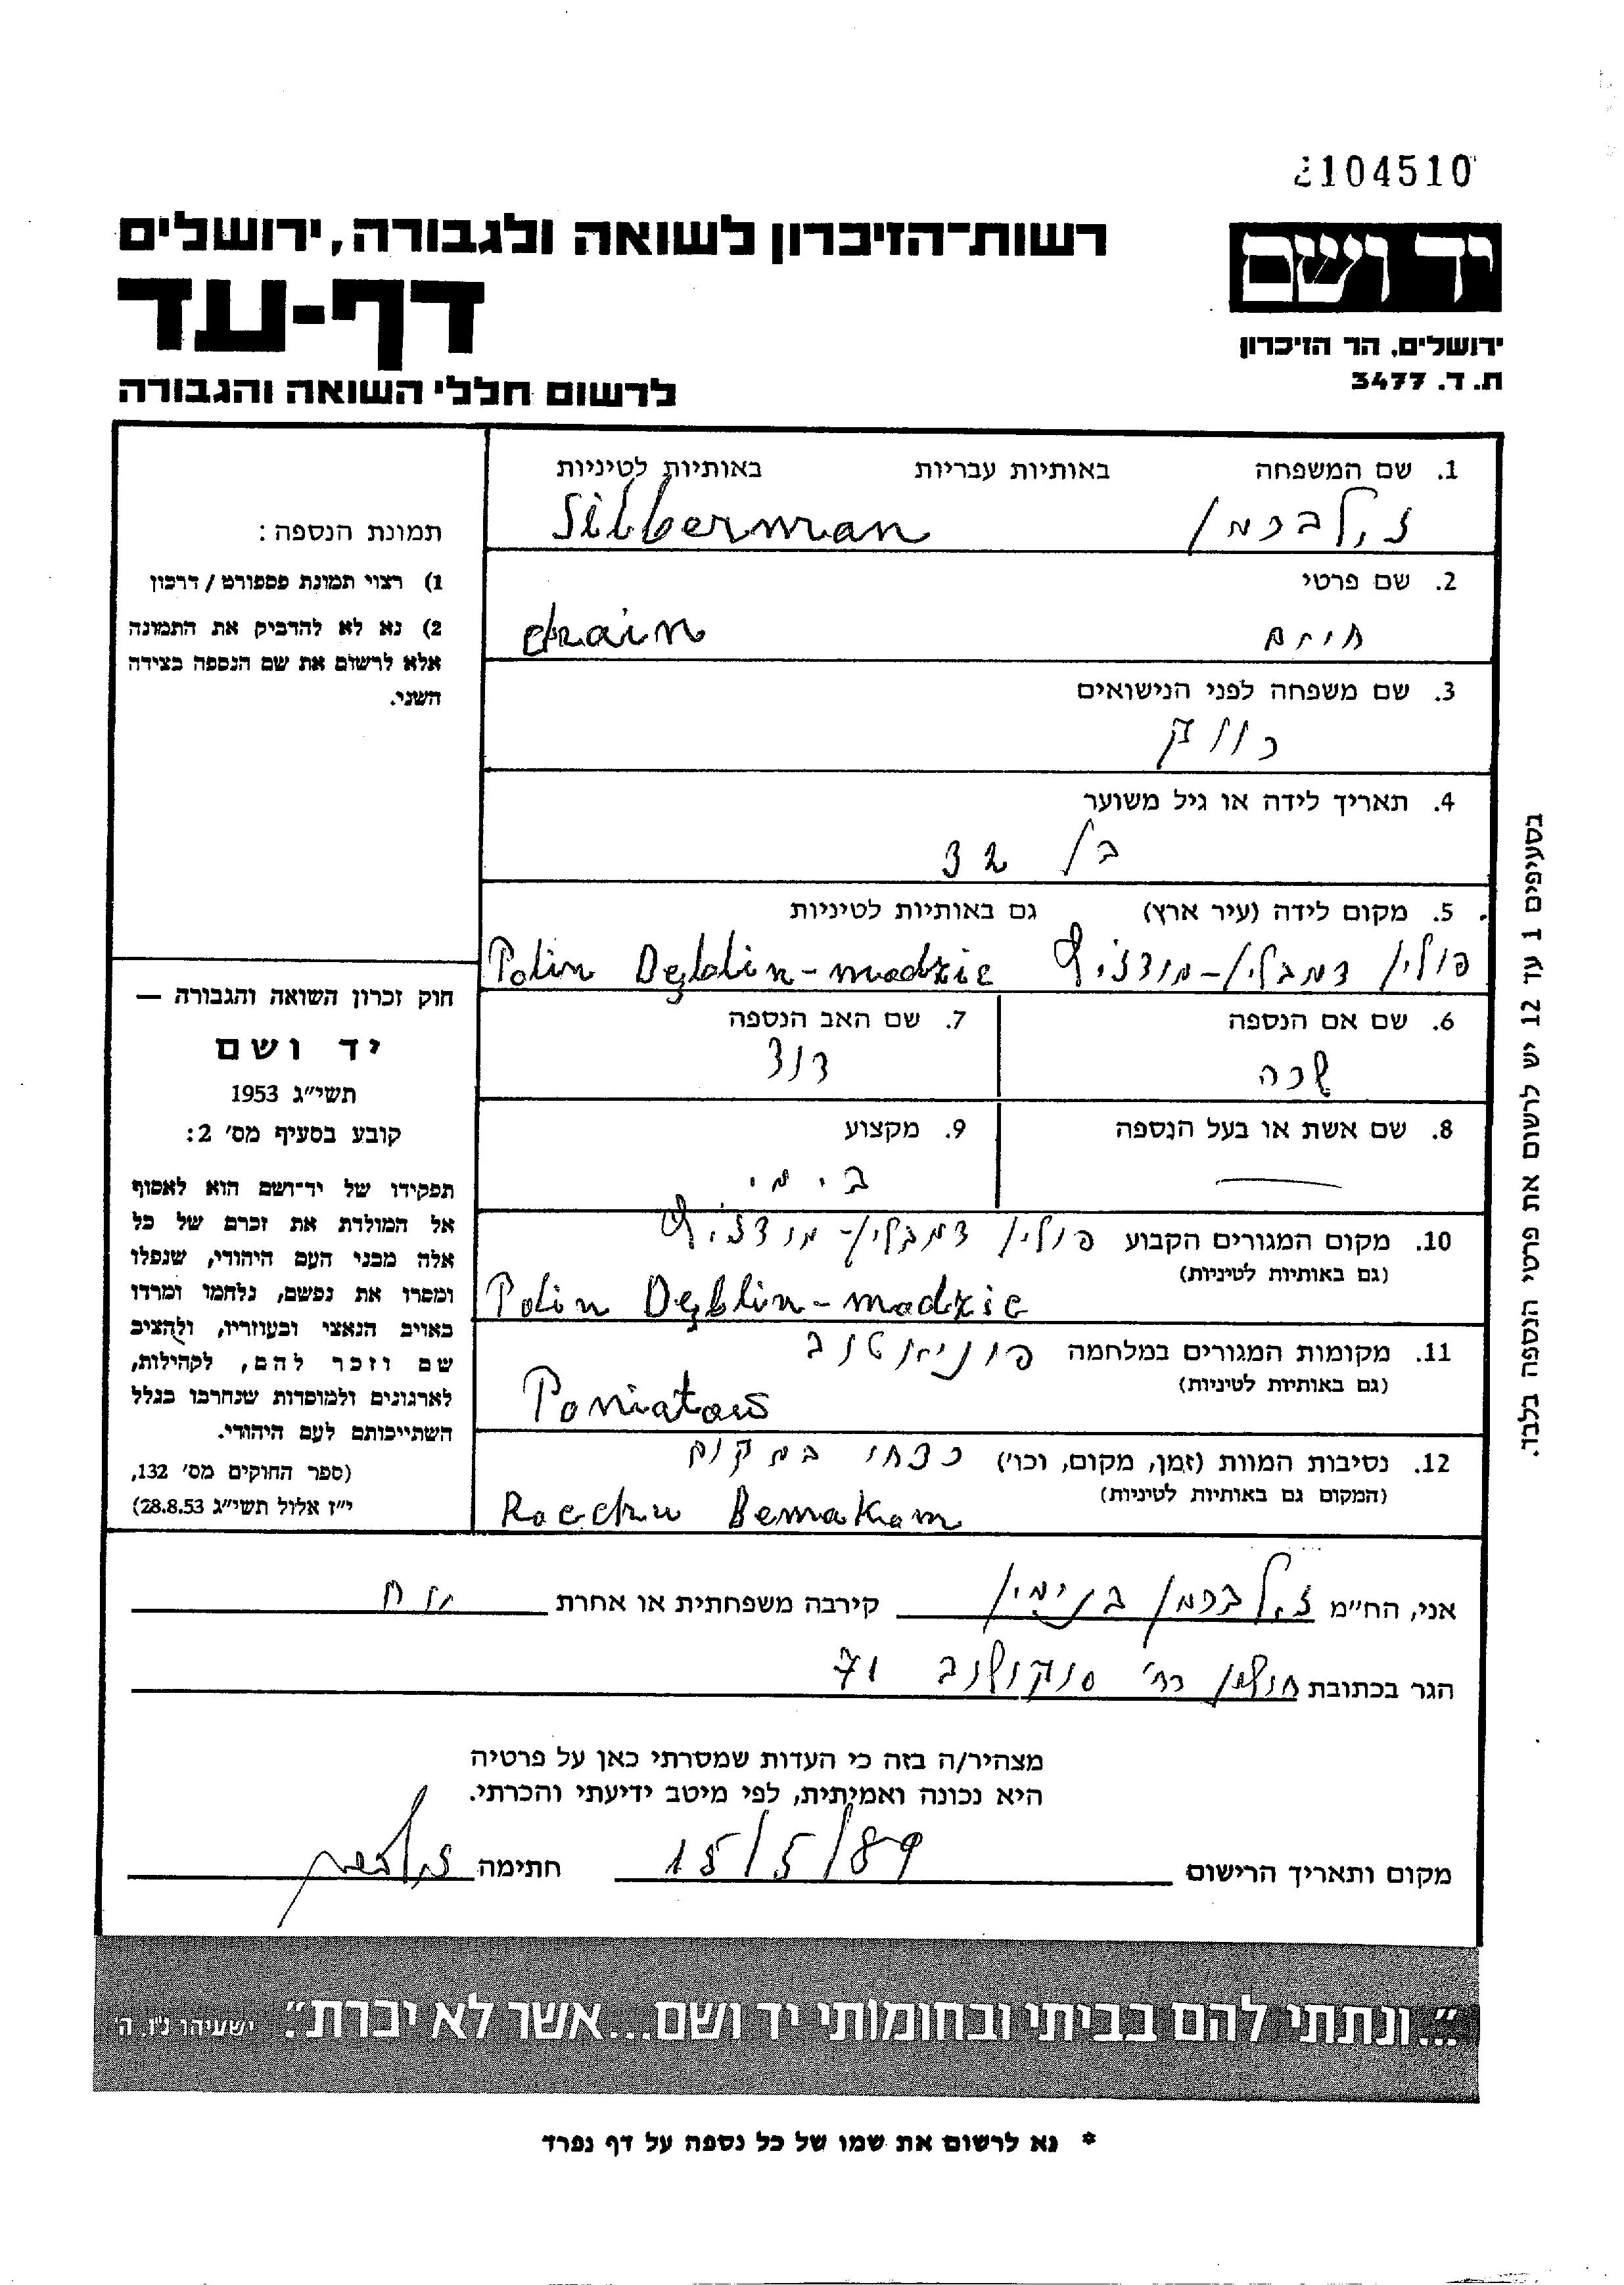 2104510
יד ושם
רשות־הזיכרון לשואה ולגבורה, ירושלים
דף-עד
ירושלים, הר הזיכרון
ת. ד. 3477
לרשום חללי השואה והגבורה
1. שם המשפחה באותיות עבריות באותיות לטיניות
זילברמן Silberman
2. שם פרטי
חיים chaim
3. שם משפחה לפני הנישואים
רווק
4. תאריך לידה או גיל משוער
בן 32
5. מקום לידה (עיר ארץ) גם באותיות לטיניות
פולין דמבלין-מודז'יץ Polin Dęblin-modzic
6. שם אם הנספה 7. שם האב הנספה
שרה דוד
8. שם אשת או בעל הנספה 9. מקצוע
10. מקום המגורים הקבוע פולין דמבלין-מודז'יץ
(גם באותיות לטיניות)
Polin Dęblin-modzic
11. מקומות המגורים במלחמה פוניאטוב
(גם באותיות לטיניות)
Poniatow
12. נסיבות המוות (זמן, מקום, וכו') רצחו במקום
(המקום גם באותיות לטיניות)
Racchu Bemakom
תמונת הנספה:
1) רצוי תמונת פספורט / דרכון
2) נא לא להדביק את התמונה
אלא לרשום את שם הנספה בצידה
השני.
חוק זכרון השואה והגבורה —
יד ושם
תשי"ג 1953
קובע בסעיף מס' 2:
תפקידו של יד־ושם הוא לאסוף
אל המולדת את זכרם של כל
אלה מבני העם היהודי, שנפלו
ומסרו את נפשם, נלחמו ומרדו
באויב הנאצי ובעוזריו, ולהציב
שם וזכר להם, לקהילות,
לארגונים ולמוסדות שנחרבו בגלל
השתייכותם לעם היהודי.
(ספר החוקים מס' 132,
י"ז אלול תשי"ג 28.8.53)
בסעיפים 1 עד 12 יש לרשום את פרטי הנספה בלבד.
אני, הח"מ זילברמן בנימין קירבה משפחתית או אחרת אח
הגר בכתובת חולון רח' סוקולוב 71
מצהיר/ה בזה כי העדות שמסרתי כאן על פרטיה
היא נכונה ואמיתית, לפי מיטב ידיעתי והכרתי.
מקום ותאריך הרישום 15/5/89 חתימה זילברמן
"...ונתתי להם בביתי ובחומותי יד ושם...אשר לא יכרת". ישעיהו נ"ו, ה'
* נא לרשום את שמו של כל נספה על דף נפרד